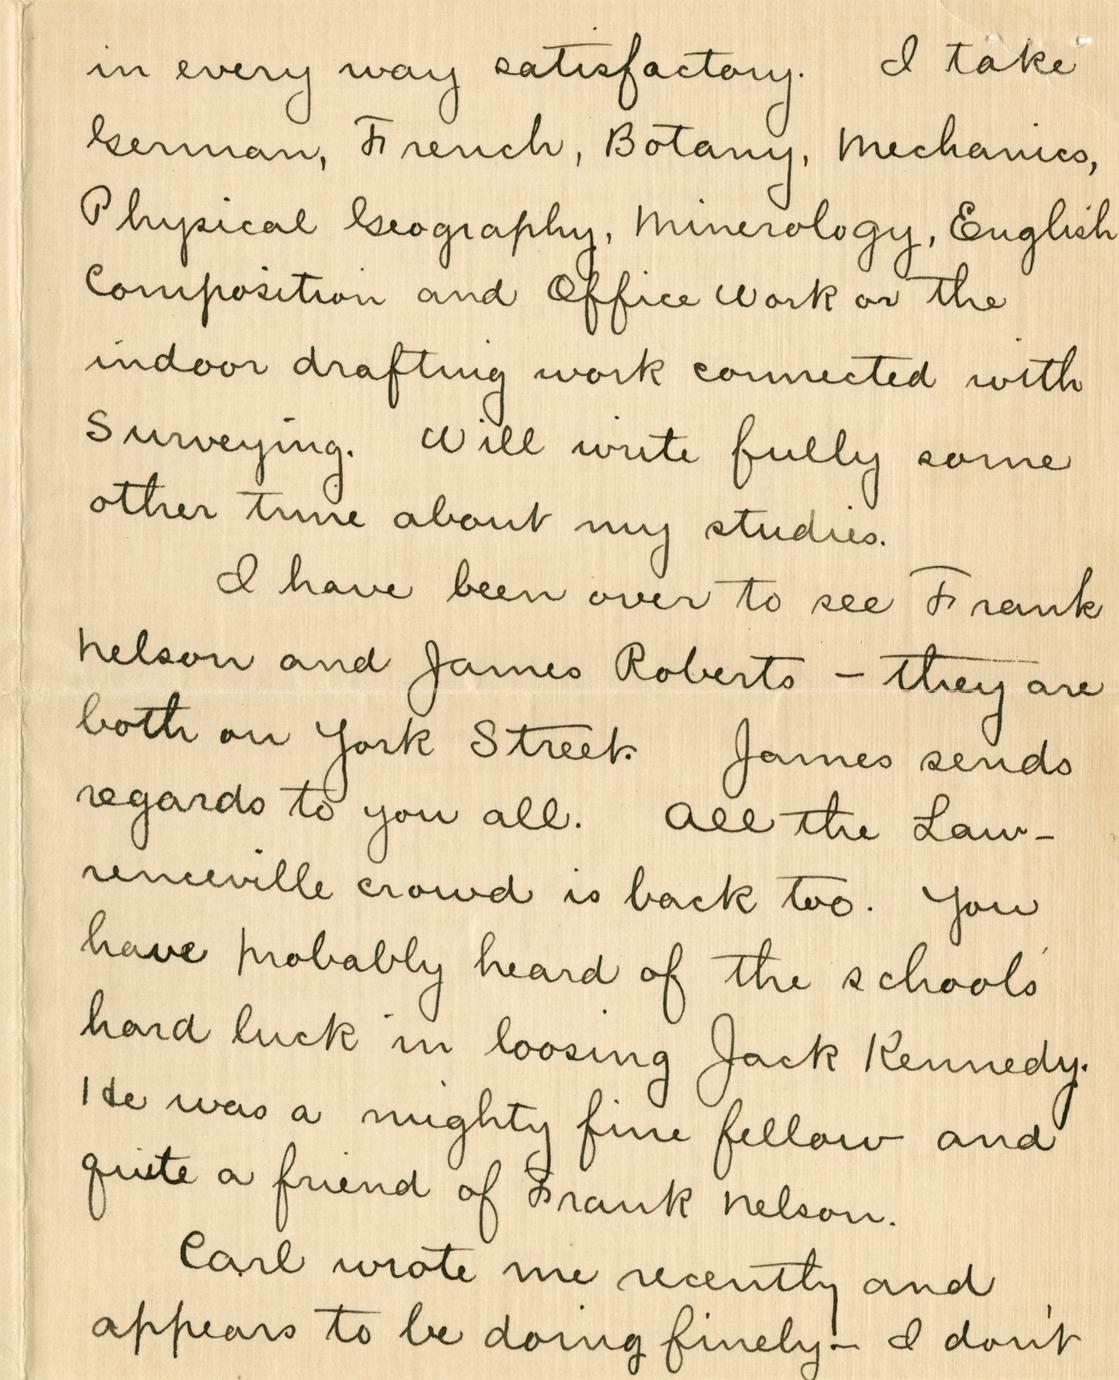 in every way satisfactory. I take
German, French, Botany, Mechanics,
Physical Geography, Minerology, English
Composition and Office Work or the
indoor drafting work connected with
Surveying. Will write fully some
other time about my studies.
I have been over to see Frank
Nelson and James Roberts – they are
both on York Street. James sends
regards to you all. All the Law-
renceville crowd is back too. You
have probably heard of the schools'
hard luck in loosing Jack Kennedy.
He was a mighty fine fellow and
quite a friend of Frank Nelson.
Carl wrote me recently and
appears to be doing finely – I don't